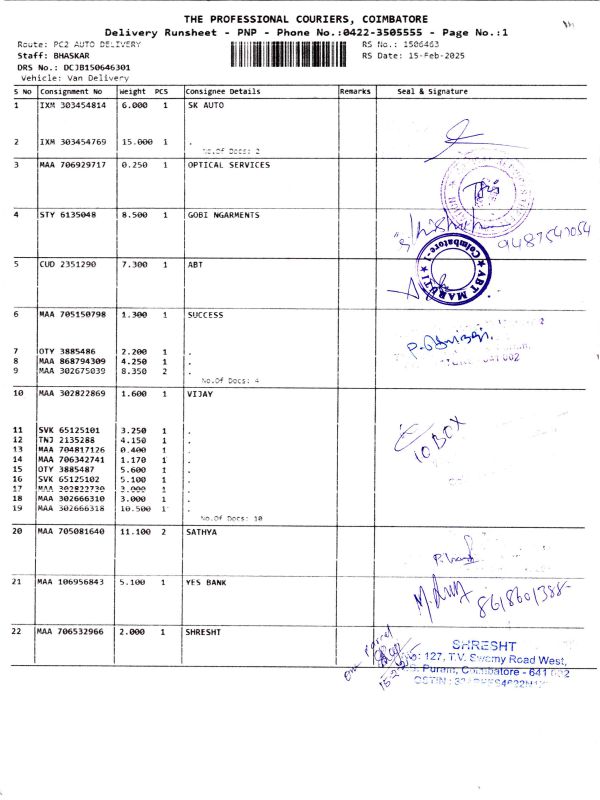 THE PROFESSIONAL COURIERS, COIMBATORE
Delivery Runsheet - PNP - Phone No.:0422-3505555 - Page No.:1
Route: PC2 AUTO DELIVERY RS No.: 1506463
Staff: BHASKAR RS Date: 15-Feb-2025
DRS No.: DCJB150646301
Vehicle: Van Delivery
S No Consignment No Weight PCS Consignee Details Remarks Seal & Signature
1 IXM 303454814 6.000 1 SK AUTO
2 IXM 303454769 15.000 1 .
No.Of Docs: 2
3 MAA 706929717 0.250 1 OPTICAL SERVICES
4 STY 6135048 8.500 1 GOBI NGARMENTS
9487547054
5 CUD 2351290 7.300 1 ABT
ABT MARUTI Coimbatore-1
6 MAA 705150798 1.300 1 SUCCESS
7 OTY 3885486 2.200 1 .
8 MAA 868794309 4.250 1 .
9 MAA 302675039 8.350 2 .
No.Of Docs: 4
641 002
10 MAA 302822869 1.600 1 VIJAY
11 SVK 65125101 3.250 1 .
12 TNJ 2135288 4.150 1 .
13 MAA 704817126 0.400 1 .
14 MAA 706342741 1.170 1 .
15 OTY 3885487 5.600 1 .
16 SVK 65125102 5.100 1 .
17 MAA 302822730 3.000 1 .
18 MAA 302666310 3.000 1 .
19 MAA 302666318 10.500 1 .
No.Of Docs: 10
10 BOX
20 MAA 705081640 11.100 2 SATHYA
21 MAA 106956843 5.100 1 YES BANK
8618601388
22 MAA 706532966 2.000 1 SHRESHT
One Parcel
SHRESHT
127, T.V. Swamy Road West,
Puram, Coimbatore - 641 002
GSTIN :